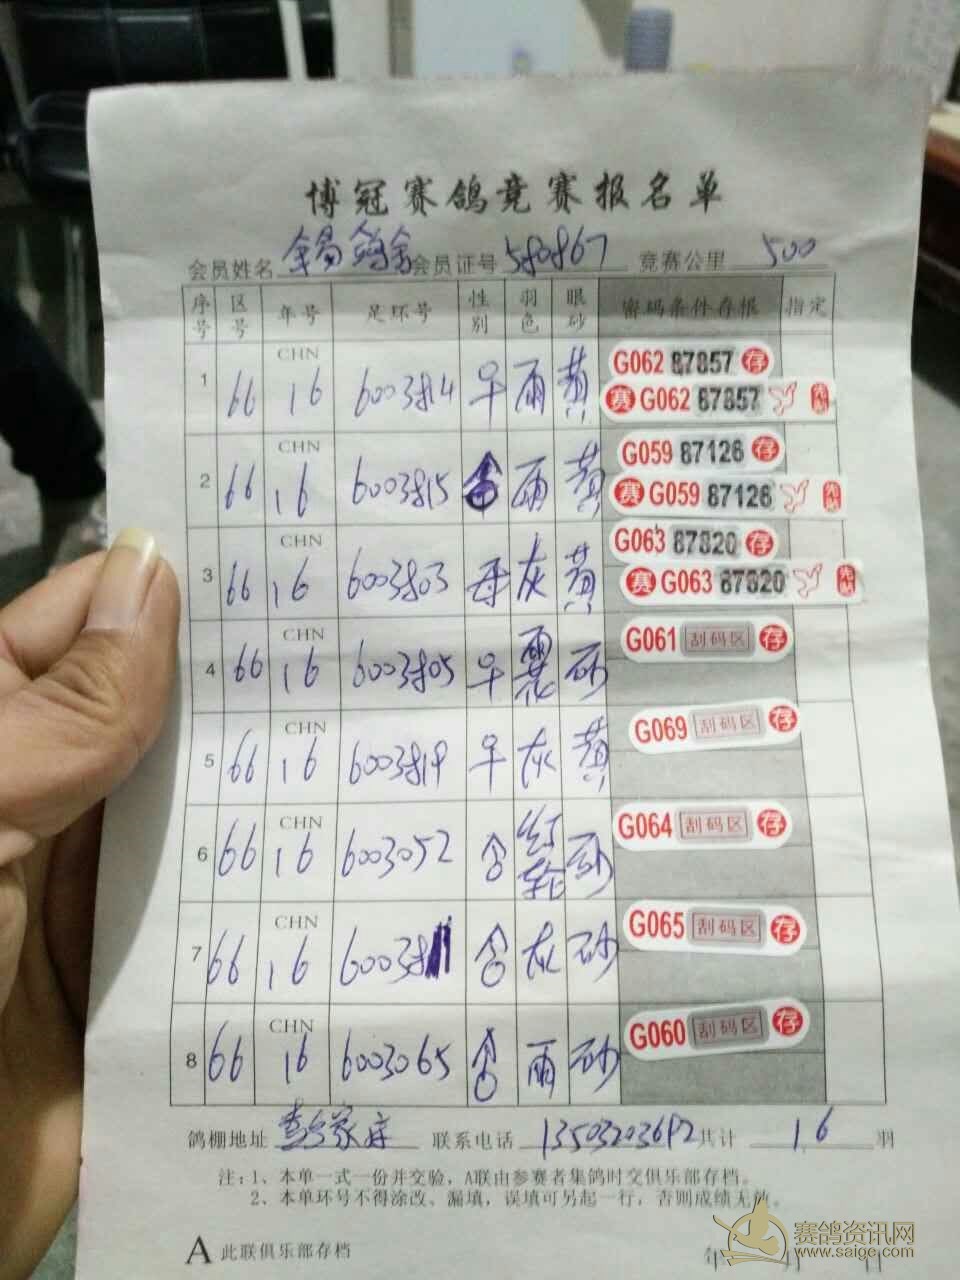 博冠赛鸽竞赛报名单
会员姓名 会员证号 580867 竞赛公里 500
序号 区号 年号 足环号 性别 羽色 眼砂 密码条件存根 指定
1 66 CHN 16 6003814 早 雨 黄 G062 87857 存
赛 G062 87857
2 66 CHN 16 6003815 雨 黄 G059 87126 存
赛 G059 87126
3 66 CHN 16 6003803 灰 黄 G063 87820 存
赛 G063 87820
4 66 CHN 16 6003805 早 雨花 砂 G061 刮码区 存
5 66 CHN 16 6003819 早 灰 黄 G069 刮码区 存
6 66 CHN 16 6003052 红轮 砂 G064 刮码区 存
7 66 CHN 16 灰 砂 G065 刮码区 存
8 66 CHN 16 6003065 雨 砂 G060 刮码区 存
鸽棚地址 联系电话 13503203692 共计 16 羽
注：1、本单一式一份并交验，A联由参赛者集鸽时交俱乐部存档。
2、本单环号不得涂改、漏填，误填可另起一行，否则成绩无效。
A 此联俱乐部存档 年 月 日
赛鸽资讯网
www.saige.com